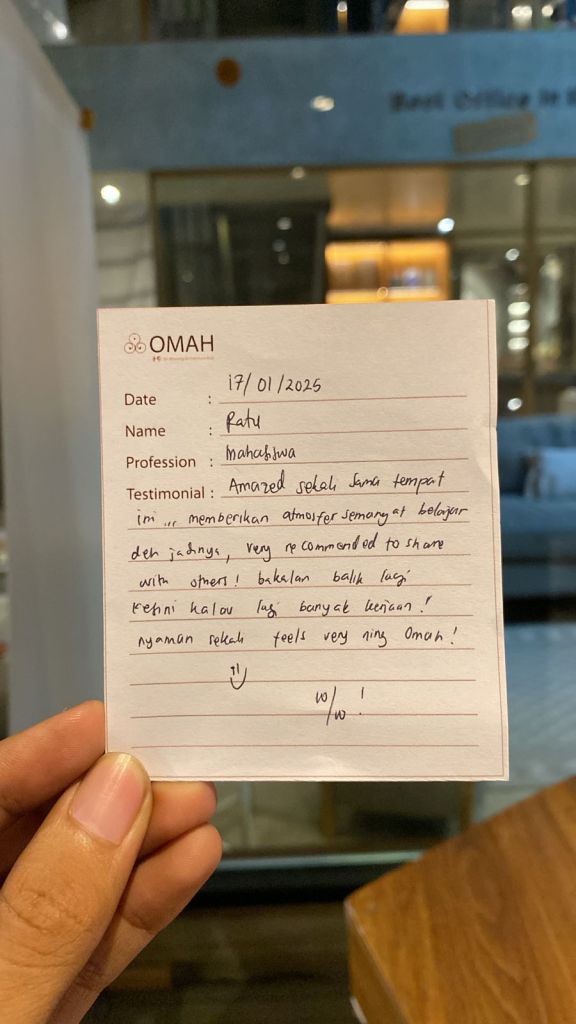 Best Office in
OMAH
Date : 17/01/2025
Name : Ratu
Profession : Mahasiswa
Testimonial : Amazed sekali sama tempat
ini ... memberikan atmosfer semangat belajar
deh jadinya, very recommended to share
with others! bakalan balik lagi
kesini kalau lagi banyak kerjaan!
nyaman sekali feels very ning Omah!
10/10 !